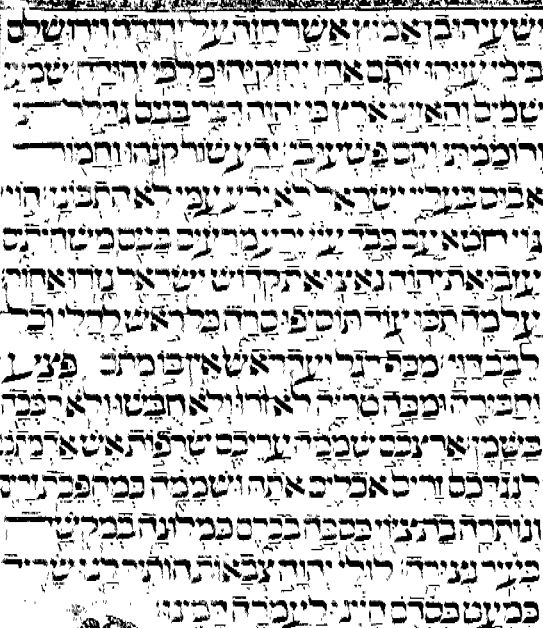 ישעיהו בן אמוץ אשר חזה על יהודה וירושלם
בימי עזיהו יותם אחז יחזקיהו מלכי יהודה שמעו
שמים והאזיני ארץ כי יהוה דבר בנים גדלתי
ורוממתי והם פשעו בי ידע שור קנהו וחמור
אבוס בעליו ישראל לא ידע עמי לא התבונן הוי
גוי חטא עם כבד עון זרע מרעים בנים משחיתם
עזבו את יהוה נאצו את קדוש ישראל נזרו אחור
על מה תכו עוד תוסיפו סרה כל ראש לחלי וכל
לבב דוי מכף רגל ועד ראש אין בו מתם פצע
וחבורה ומכה טריה לא זרו ולא חבשו ולא רככה
בשמן ארצכם שממה עריכם שרפות אש אדמתכם
לנגדכם זרים אכלים אתה ושממה כמהפכת זרים
ונותרה בת ציון כסכה בכרם כמלונה במקשה
כעיר נצורה לולי יהוה צבאות הותיר לנו שריד
כמעט כסדם היינו לעמרה דמינו